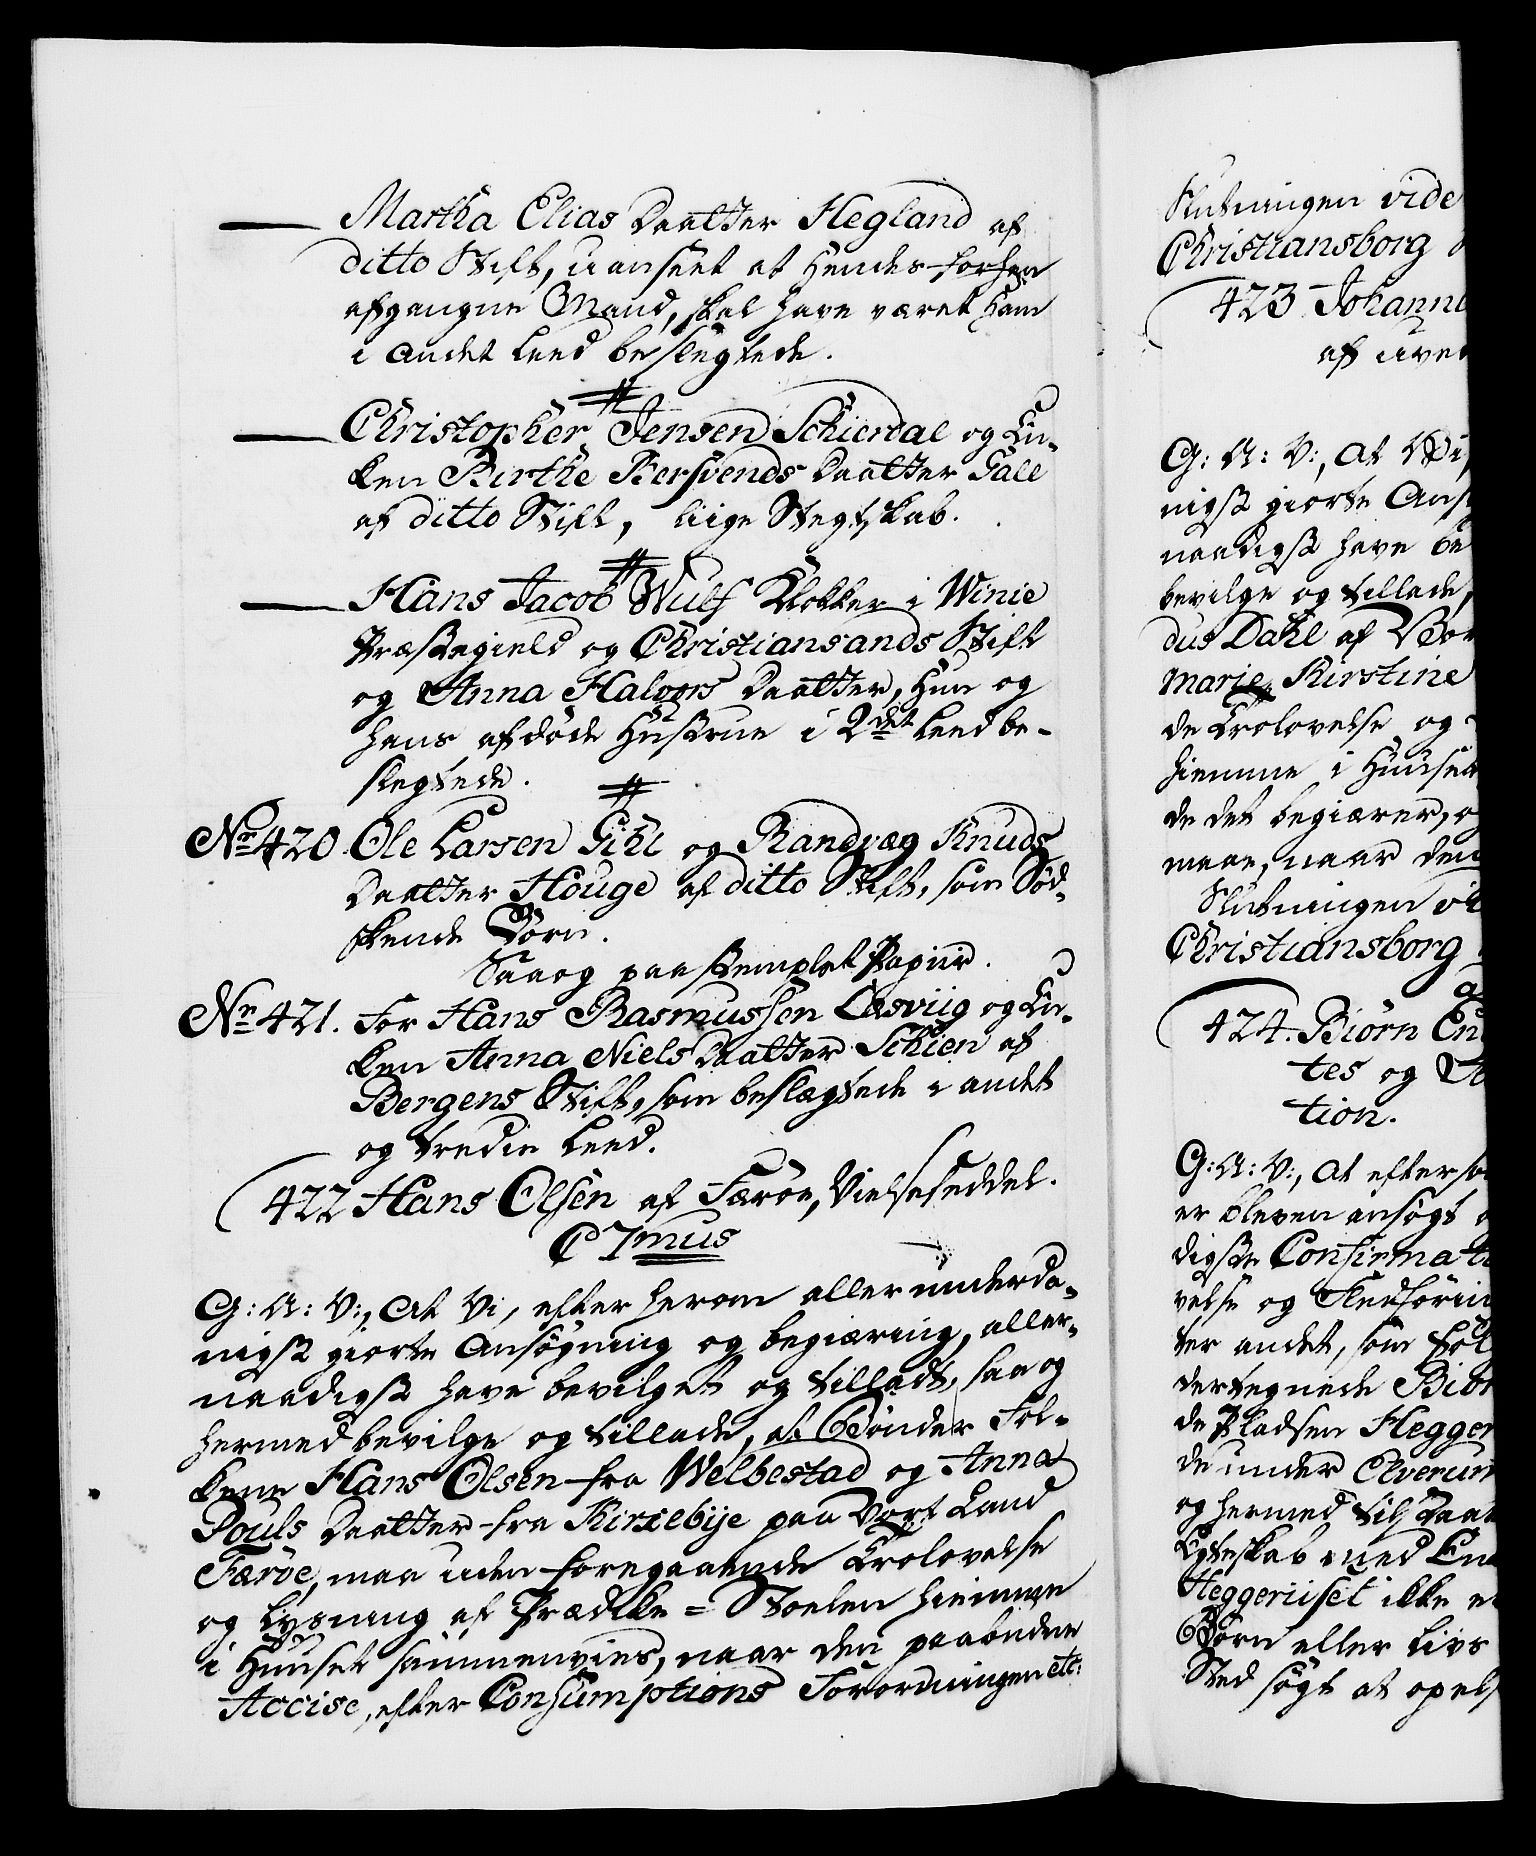 Martha Elias Daatter Hegland af
ditto Stift, uanseet at Hendes forhen
afgangne Mand, skal have været ham
i andet Leed beslegtede.
Christopher Jensen Schierdal og En-
ken Birthe Bersvends Daatter Galle
af ditto Stift, liige Slegtskab.
Hans Jacob Wulf Klokker i Winie
Præstegield og Christiansands Stift
og Anna Halvors Daatter, Hun og
hans afdøde Hustrue i 2det Leed be-
slegtede.
No 420. Ole Larsen Gihl og Randvæg Knuds
Daatter Houge af ditto Stift, som Sød-
skende Børn.
Saaog paa stemplet Papiir.
No 421. For Hans Rasmussen Løsviig og En-
ken Anna Niels Daatter Schien af
Bergens Stift, som beslægtede i andet
og tredie Leed.
422 Hans Olsen af Færøe, Vielseseddel.
C 7mus
G: A: V:, at Vi, efter herom allerunderda-
nigst giorte Ansøgning og begiæring, aller-
naadigst have bevilget og tilladt, saa og
hermed bevilge og tillade, at Bønder Fol-
kene Hans Olsen fra Welbestad og Anna
Pouls Daatter fra Kirkebye paa Vort Land
Færøe, maa uden foregaaende Trolovelse
og Lysning af Prædike-Stoelen hiemme
i Huuset sammenvies, naar den paabudne
Accise, efter Consumptions Forordningen etc:
Slutningen vide
Christiansborg
423 Johanne
af uved
G: A: V:, at Vi,
nigst giorte Ans
naadigst have be
bevilge og tillade,
dus Dahl af Bor
Marie Kirstine
de Trolovelse og
hiemme i Huuset
de det begiærer, og
maae, naar den
Slutningen vi
Christiansborg
424. Biørn En
tes og
tion.
G: A: V:, at eftersom
er bleven ansøgt
digste Confirmati
velse og Stedføring
ter andet, som føl
dertegnede Biør
de Pladsen Hegger
de under Elverum
og hermed til
Egteskab med En
Heggeriiset ikke e
Børn eller Livs
Sted søgt at opels